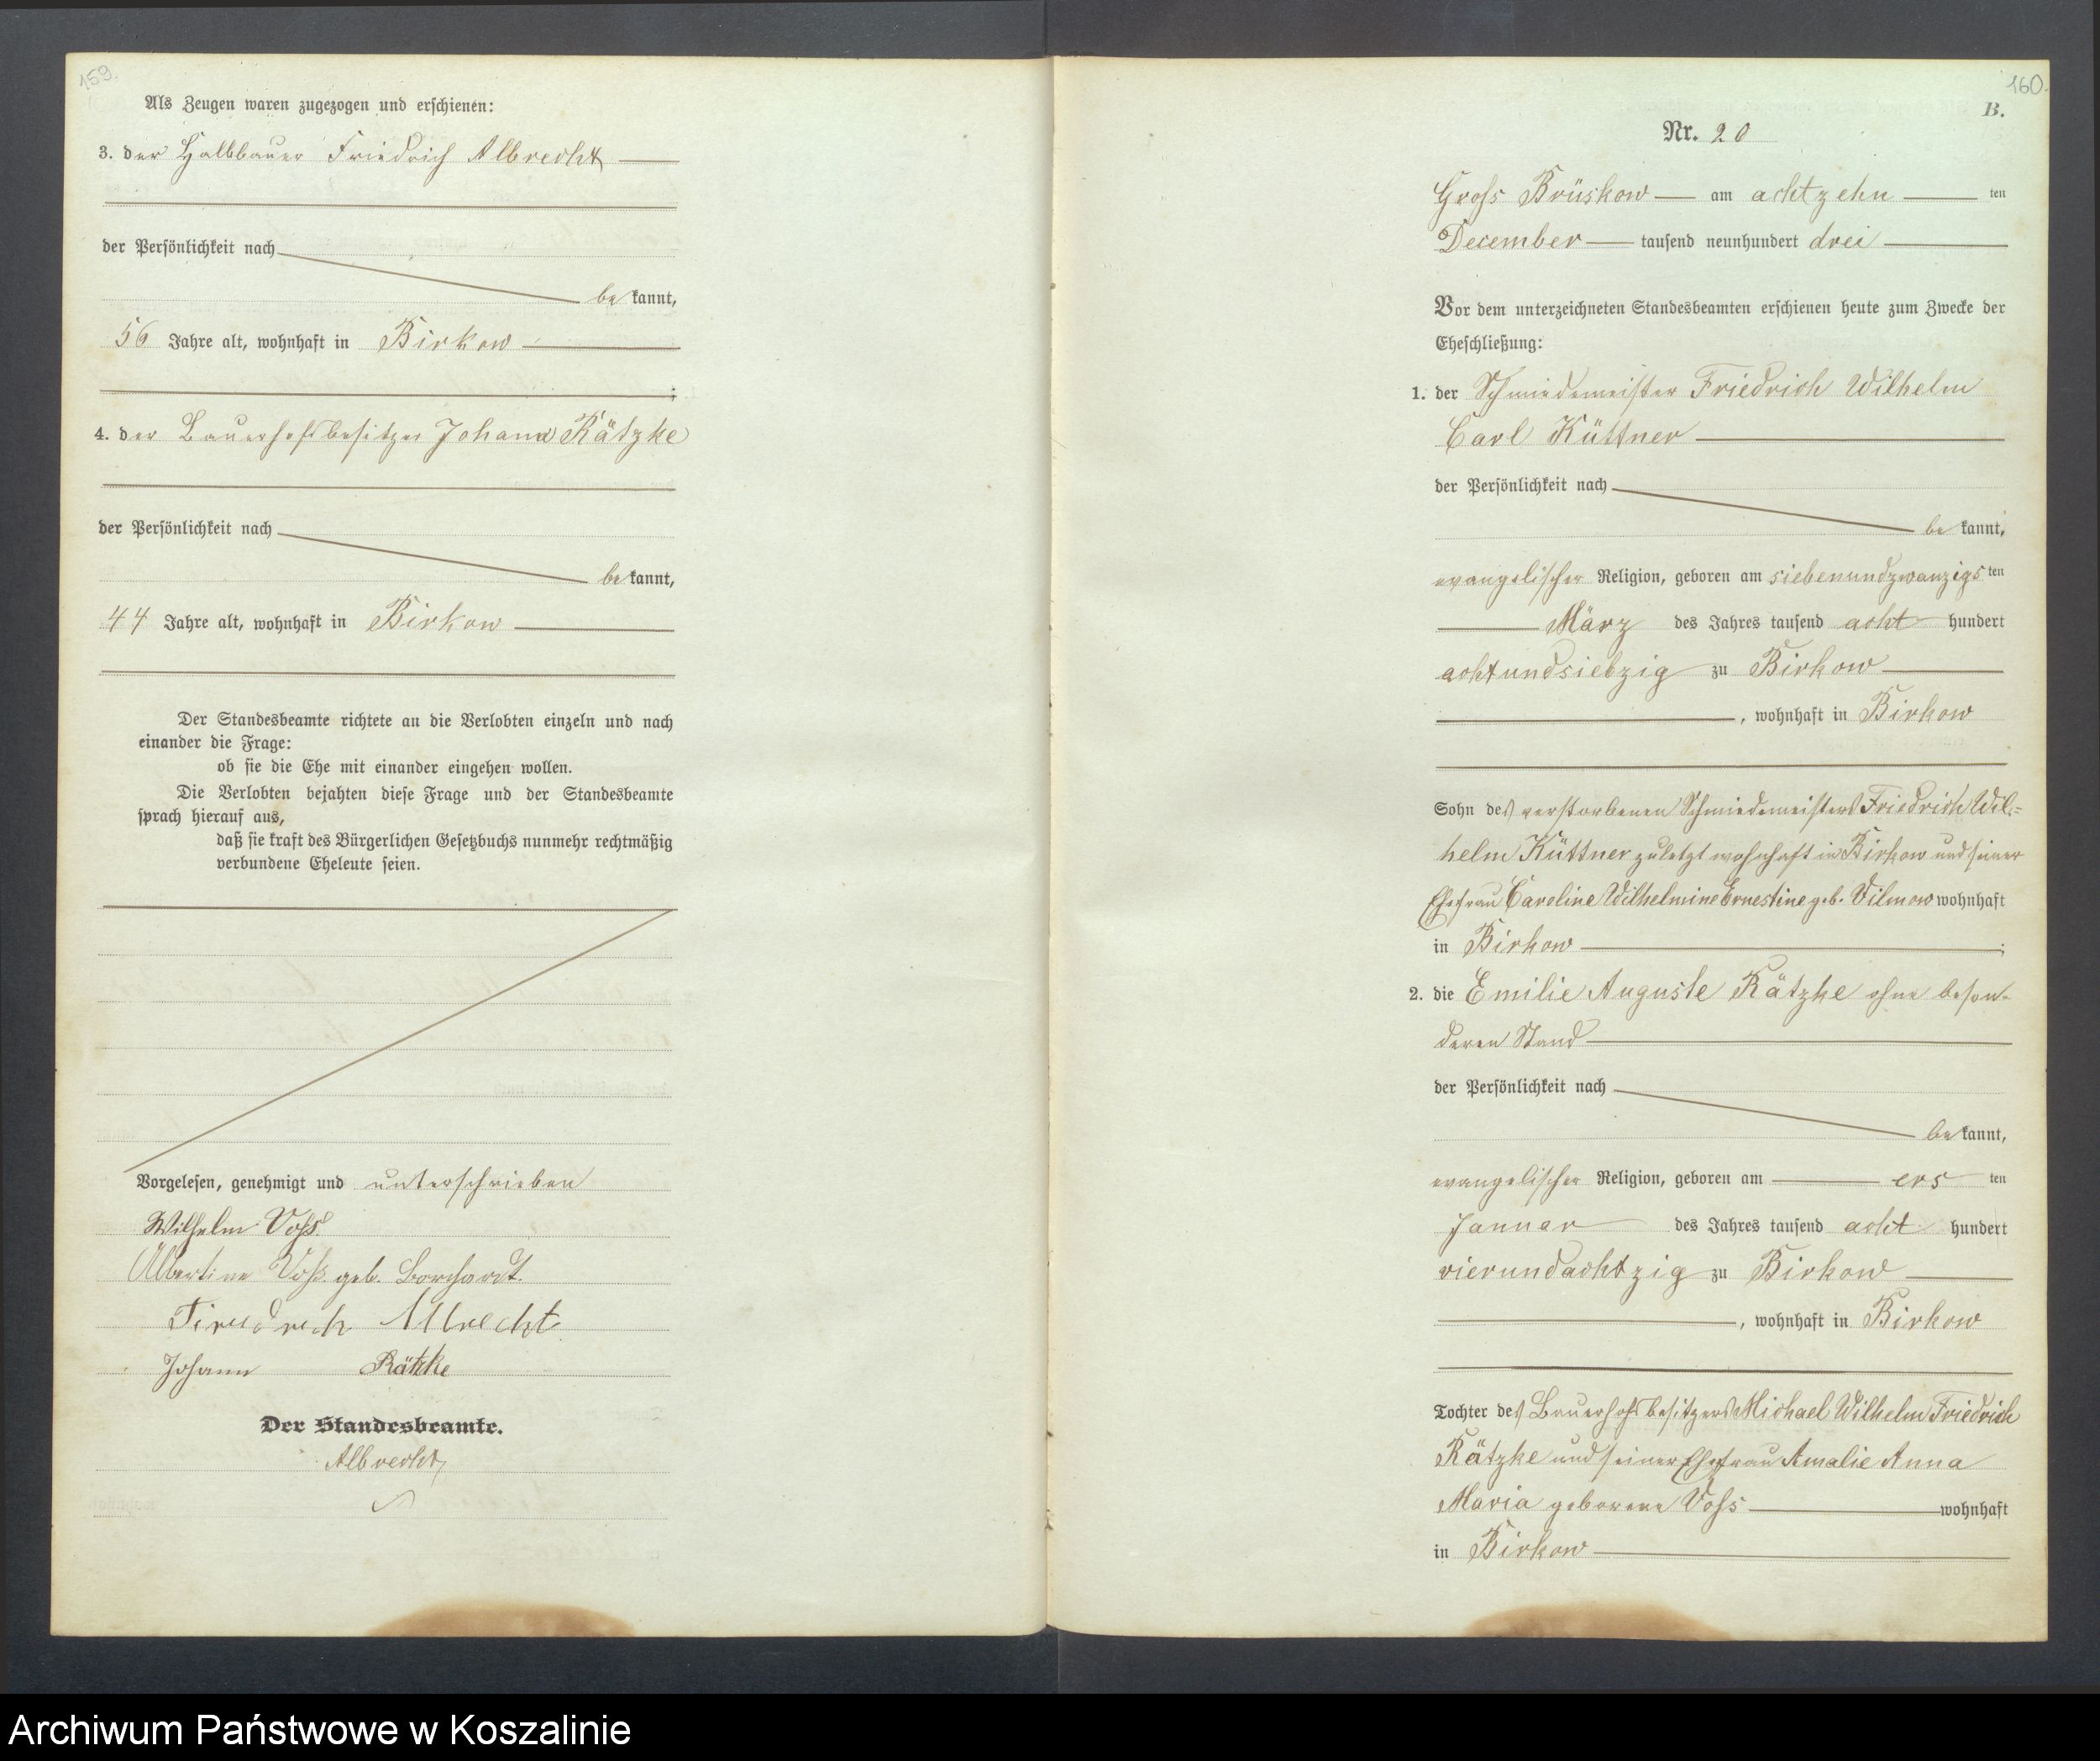 159.
Als Zeugen waren zugezogen und erschienen:
3. der Halbbauer Friedrich Albrecht
der Persönlichkeit nach
be kannt,
56 Jahre alt, wohnhaft in Birkow
;
4. der Bauerhofsbesitzer Johann Rätzke
der Persönlichkeit nach
be kannt,
44 Jahre alt, wohnhaft in Birkow
Der Standesbeamte richtete an die Verlobten einzeln und nach
einander die Frage:
ob sie die Ehe mit einander eingehen wollen.
Die Verlobten bejahten diese Frage und der Standesbeamte
sprach hierauf aus,
daß sie kraft des Bürgerlichen Gesetzbuchs nunmehr rechtmäßig
verbundene Eheleute seien.
Vorgelesen, genehmigt und unterschrieben
Wilhelm Voß
Albertine Voß geb. Borchardt.
Friedrich Albrecht
Johann Rätzke
Der Standesbeamte.
Albrecht
160.
B.
Nr. 20
Gross Brüskow am achtzehn ten
December tausend neunhundert drei
Vor dem unterzeichneten Standesbeamten erschienen heute zum Zwecke der
Eheschließung:
1. der Schmiedemeister Friedrich Wilhelm
Carl Küttner
der Persönlichkeit nach
be kannt,
evangelischer Religion, geboren am siebenundzwanzigs ten
März des Jahres tausend acht hundert
achtundsiebzig zu Birkow
, wohnhaft in Birkow
Sohn des verstorbenen Schmiedemeisters Friedrich Wil-
helm Küttner zuletzt wohnhaft in Birkow und seiner
Ehefrau Caroline Wilhelmine Ernestine geb. Vilmow wohnhaft
in Birkow ;
2. die Emilie Auguste Rätzke ohne beson-
deren Stand
der Persönlichkeit nach
be kannt,
evangelischer Religion, geboren am ers ten
Januar des Jahres tausend acht hundert
vierundachtzig zu Birkow
, wohnhaft in Birkow
Tochter des Bauerhofsbesitzers Michael Wilhelm Friedrich
Rätzke und seiner Ehefrau Amalie Anna
Maria geborene Voss wohnhaft
in Birkow
Archiwum Państwowe w Koszalinie